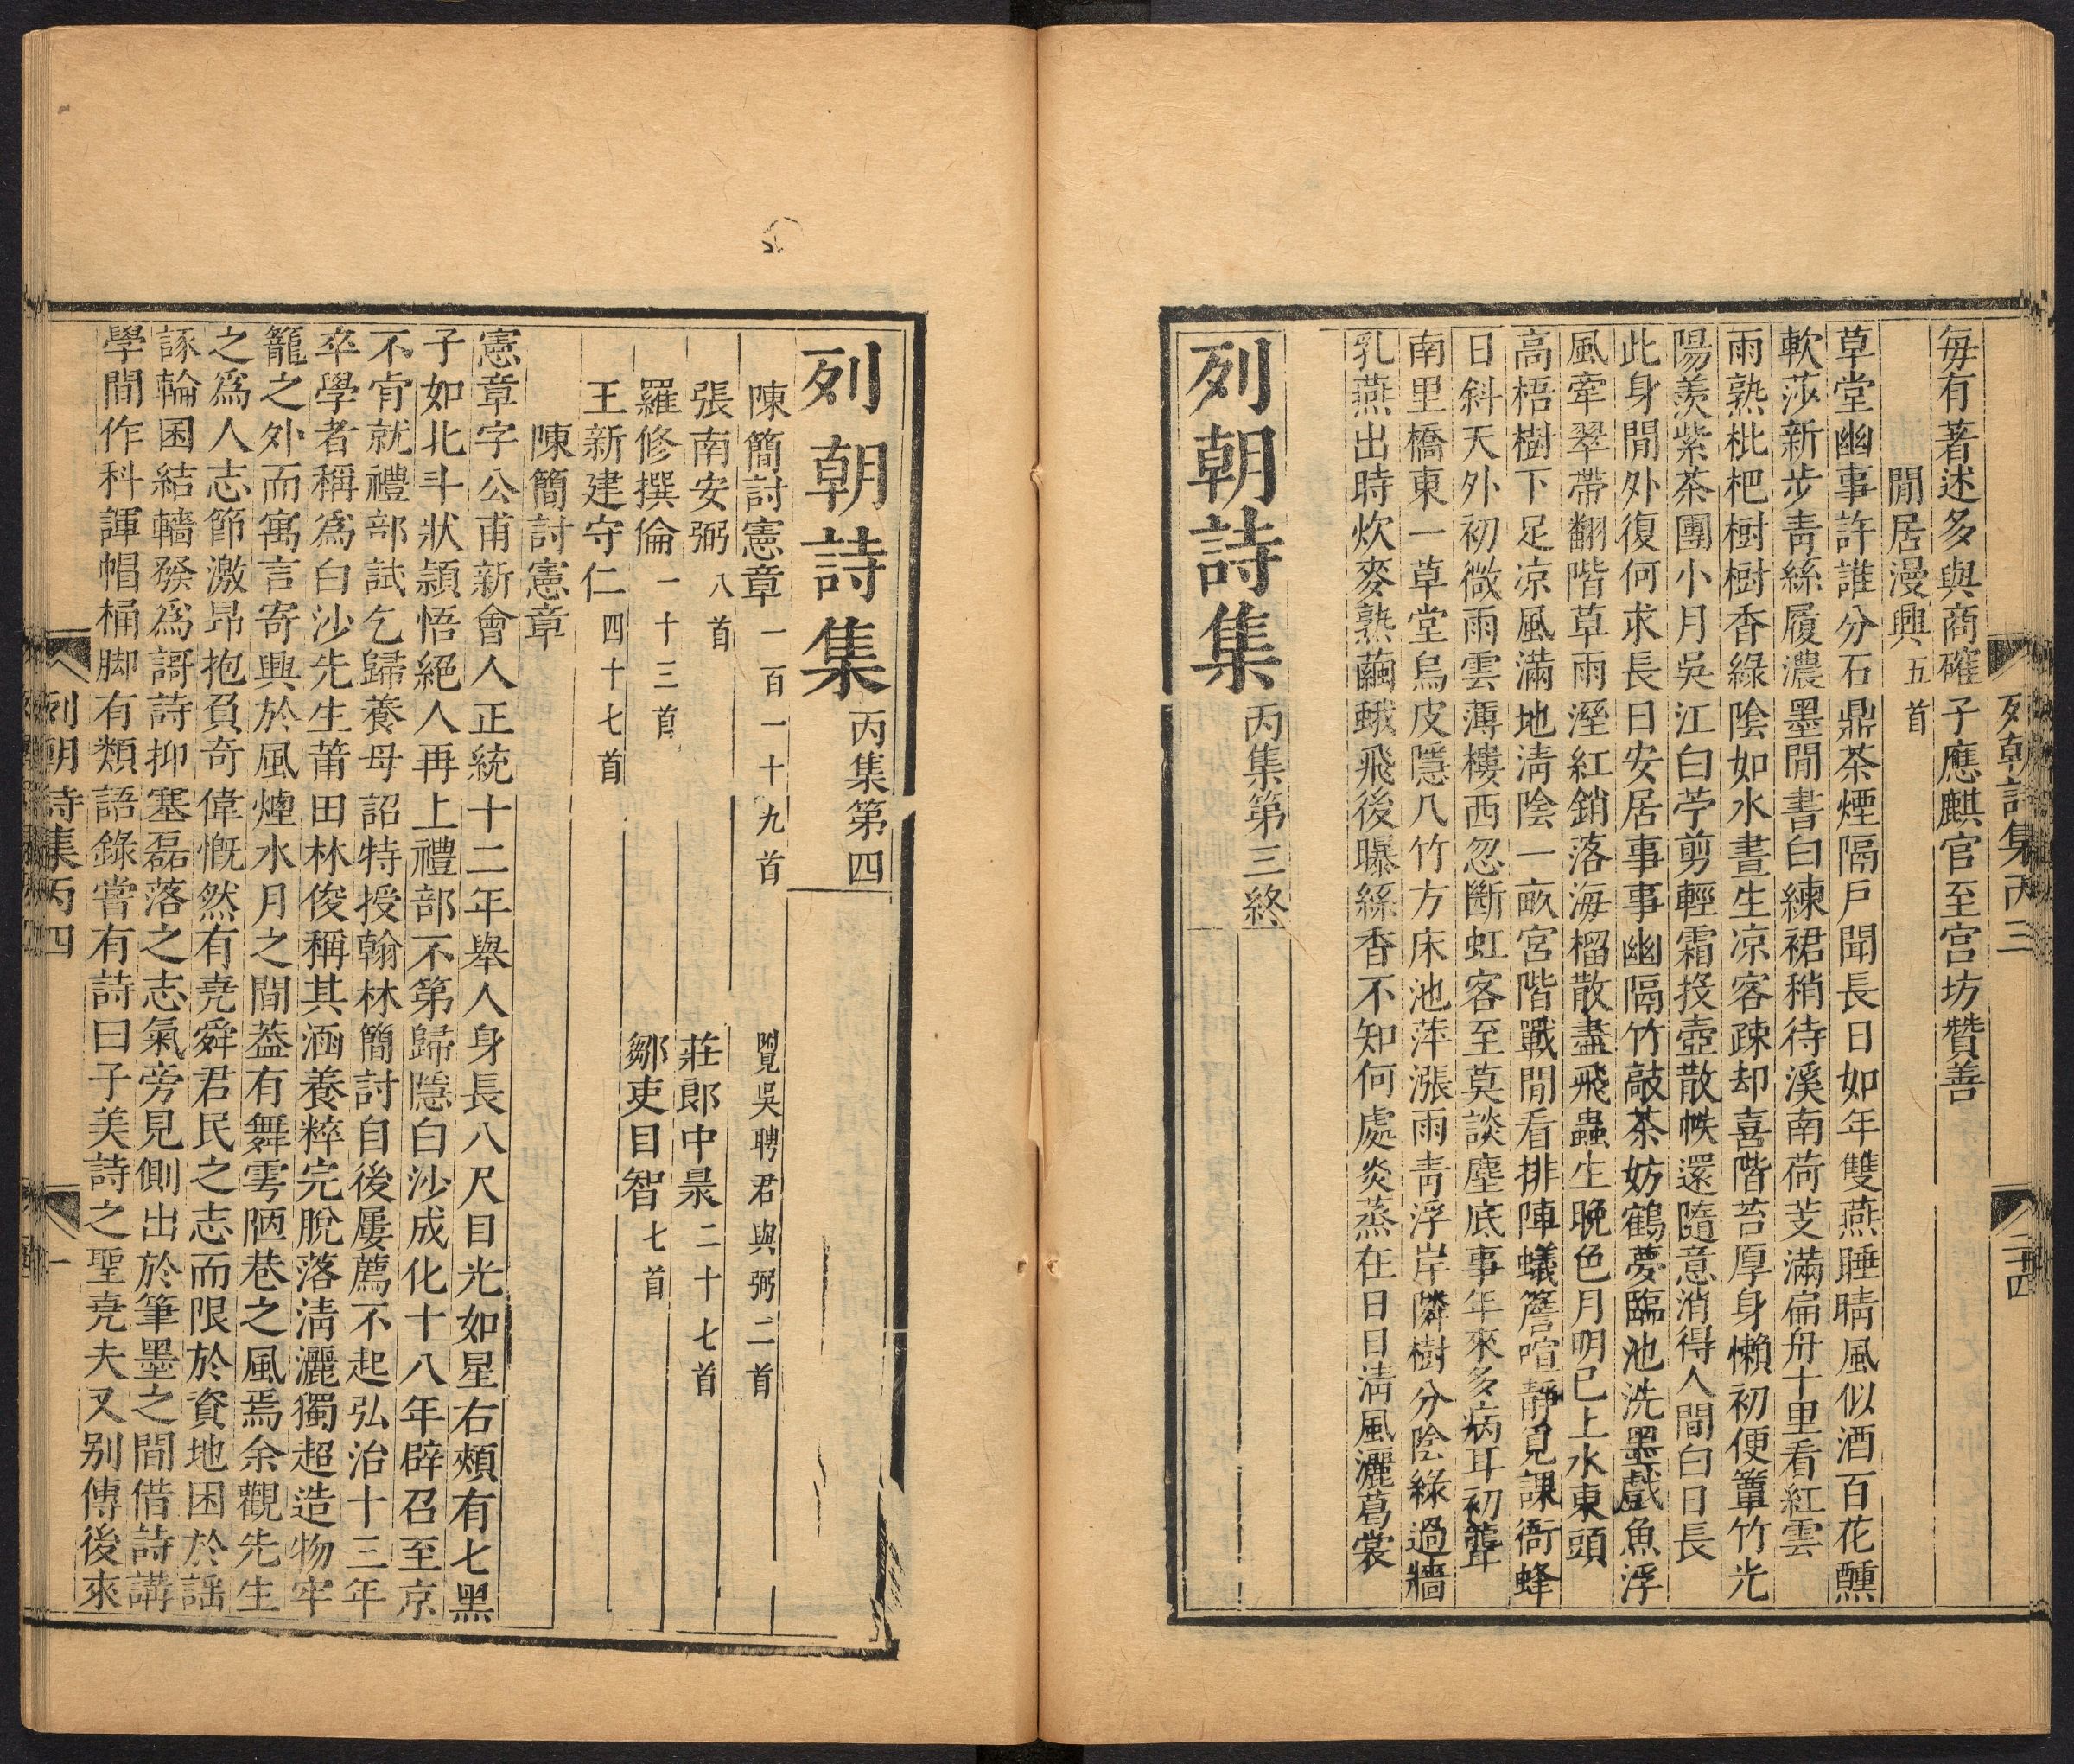 列朝詩集丙三
二十四
每有著述多與商確子應麒官至宮坊贊善
閒居漫興五首
草堂幽事許誰分石鼎茶煙隔戶聞長日如年雙燕睡晴風似酒百花醺
軟莎新步靑絲履濃墨閒書白練裙稍待溪南荷芰滿扁舟十里看紅雲
雨熟枇杷樹樹香綠陰如水晝生凉客疎却喜階苔厚身懶初便簟竹光
陽羨紫茶團小月吳江白苧剪輕霜投壺散帙還隨意消得人間白日長
此身閒外復何求長日安居事事幽隔竹敲茶妨鶴夢臨池洗墨戲魚浮
風牽翠帶翻階草雨溼紅銷落海榴散盡飛蟲生晚色月明已上水東頭
高梧樹下足凉風滿地淸陰一畝宮階戰閒看排陣蟻簷喧靜覓課衙蜂
日斜天外初微雨雲薄樓西忽斷虹客至莫談塵底事年來多病耳初聾
南里橋東一草堂烏皮隱几竹方床池萍漲雨靑浮岸隣樹分陰綠過牆
乳燕出時炊麥熟繭蛾飛後曝絲香不知何處炎蒸在日日淸風灑葛裳
列朝詩集丙集第三終
列朝詩集丙集第四
陳簡討憲章一百一十九首 覽吳聘君與弼二首
張南安弼八首 莊郎中㫤二十七首
羅修撰倫一十三首 鄒吏目智七首
王新建守仁四十七首
陳簡討憲章
憲章字公甫新會人正統十二年舉人身長八尺目光如星右頰有七黑
子如北斗狀頴悟絕人再上禮部不第歸隱白沙成化十八年辟召至京
不肯就禮部試乞歸養母詔特授翰林簡討自後屢薦不起弘治十三年
卒學者稱爲白沙先生莆田林俊稱其涵養粹完脫落淸灑獨超造物牢
籠之外而寓言寄興於風煙水月之間葢有舞雩陋巷之風焉余觀先生
之爲人志節激昂抱負奇偉慨然有堯舜君民之志而限於資地困於謡
諑輪囷結轖發爲謌詩抑塞磊落之志氣旁見側出於筆墨之間借詩講
學間作科諢帽桶脚有類語錄嘗有詩曰子美詩之聖堯夫又别傳後來
列朝詩集丙四
一